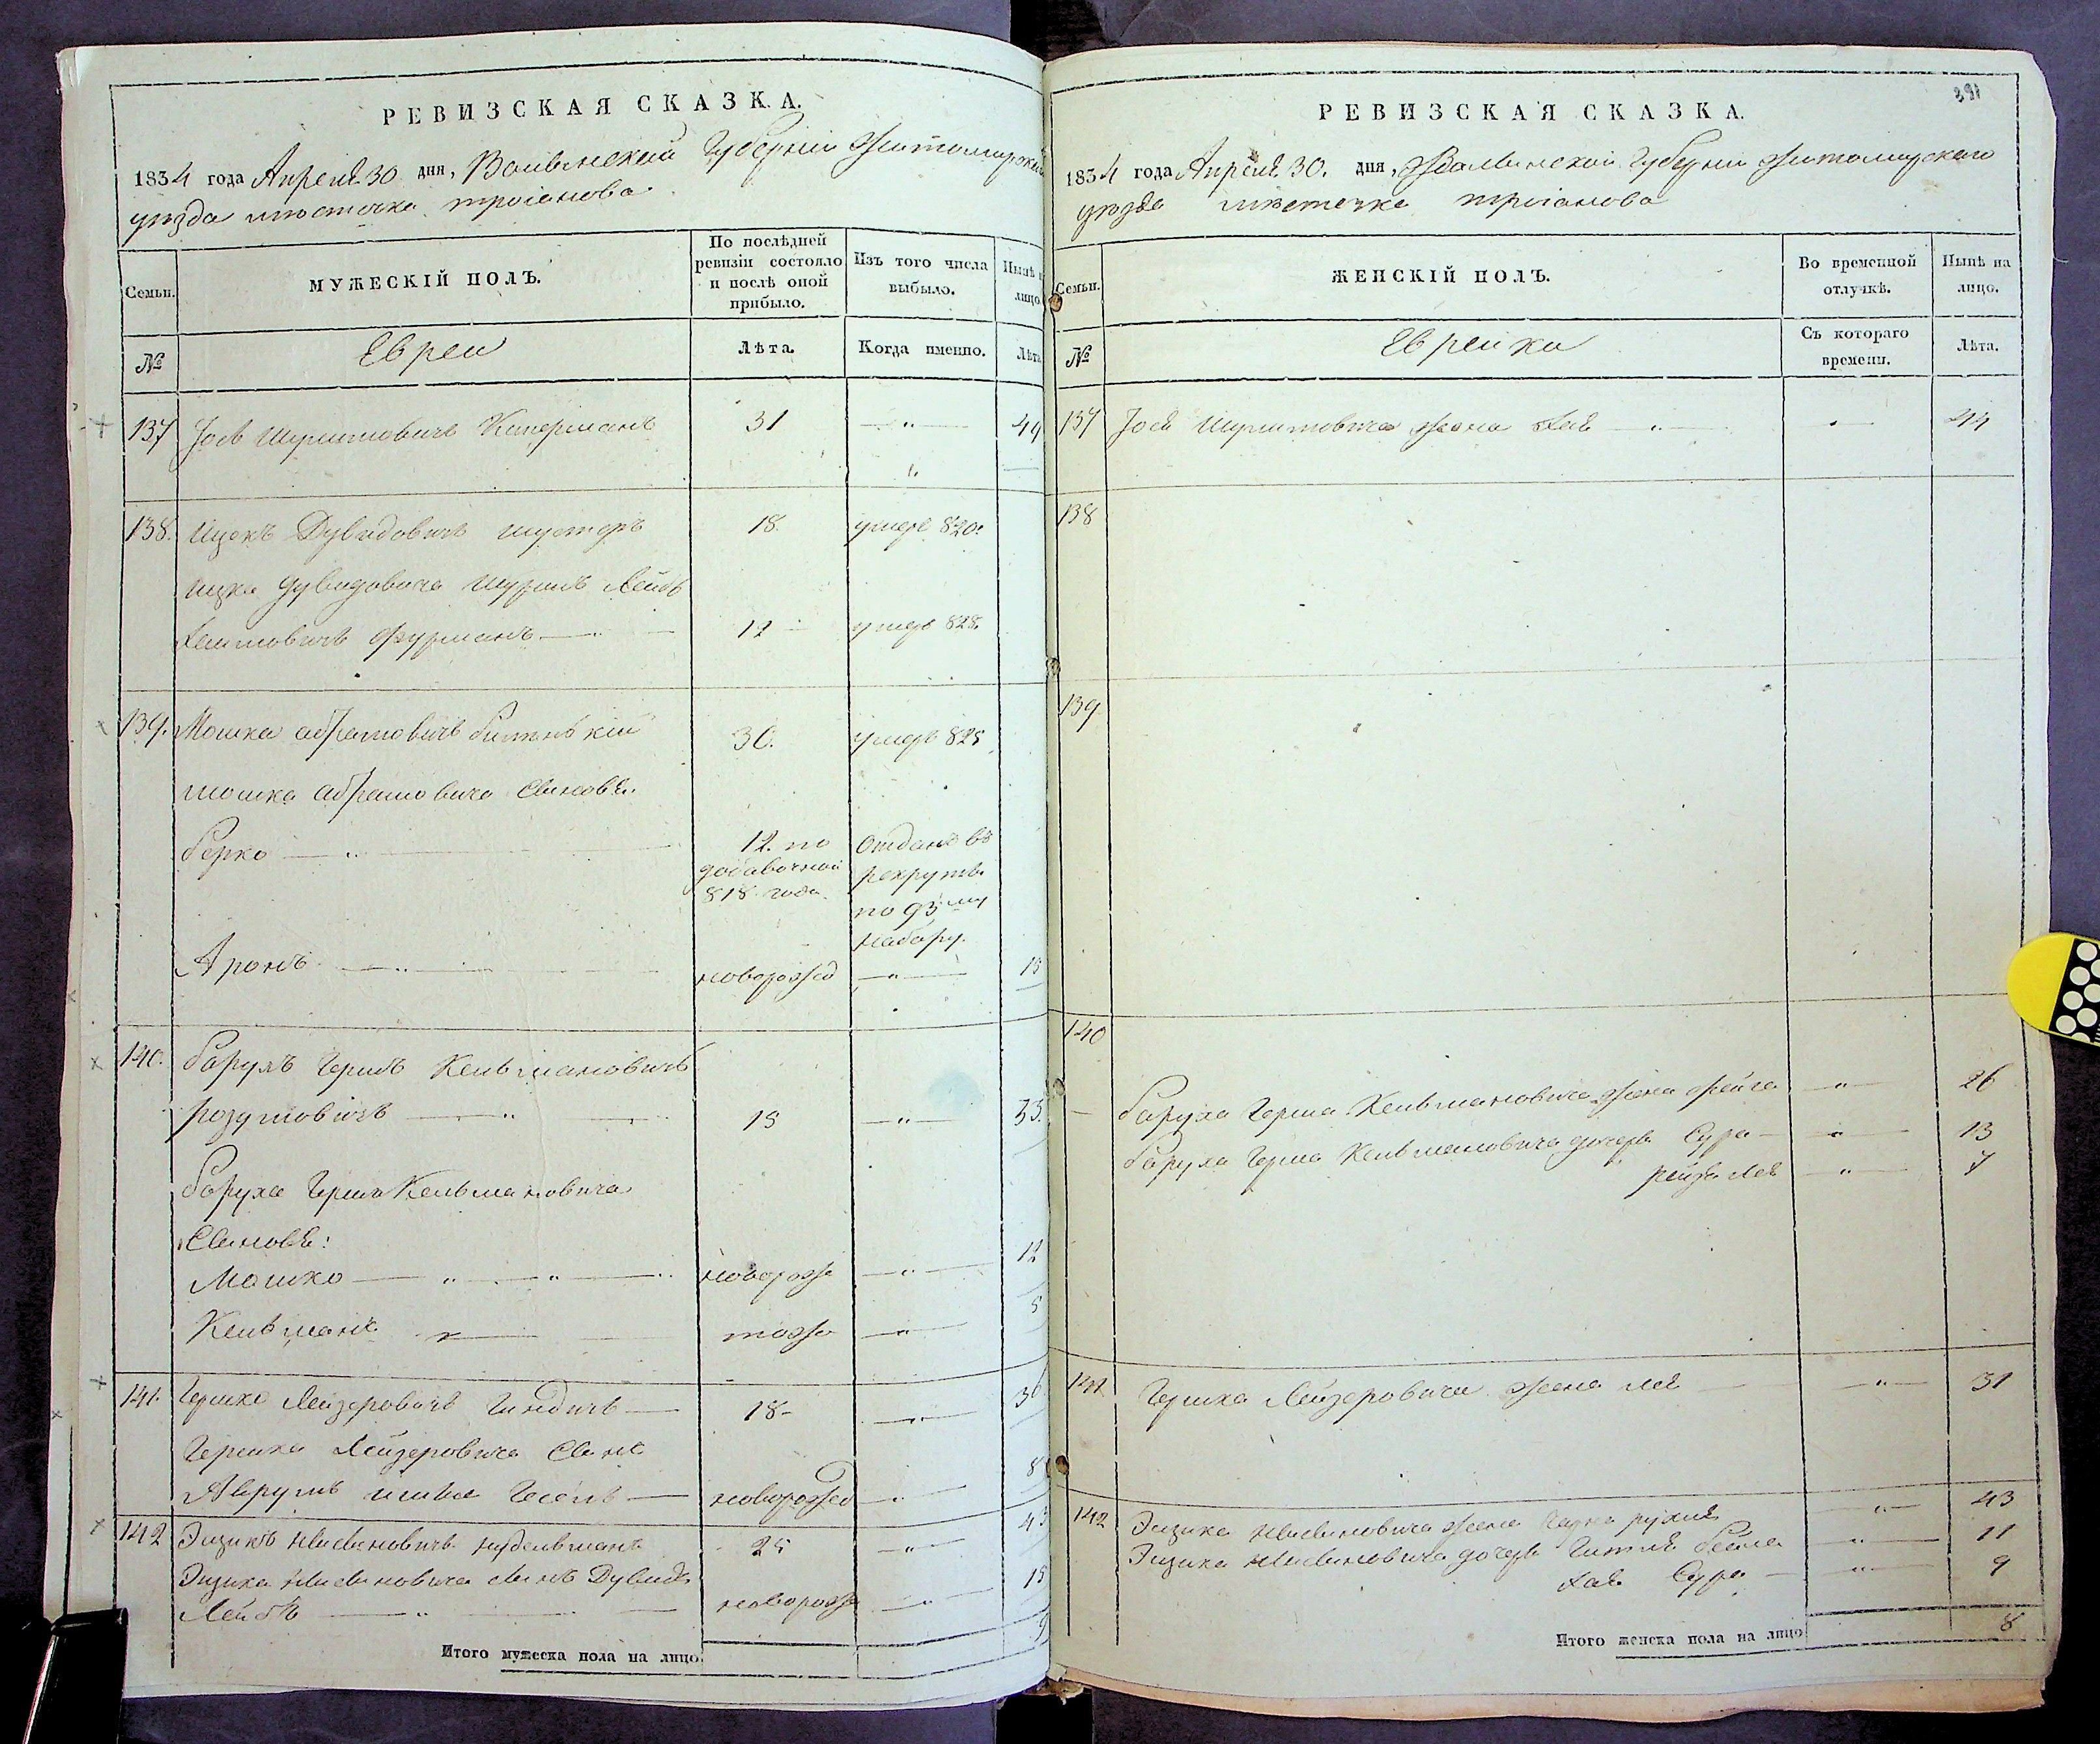 РЕВИЗСКАЯ СКАЗКА.
1834 года Апреля 30 дня, Волынской Губернии Житомирскаго
уезда местечка троянова
Семьи.
МУЖЕСКІЙ ПОЛЪ.
По послѣдней ревизіи состояло и послѣ оной прибыло.
Изъ того числа выбыло.
Нынѣ на лицо.
№
Евреи
Лѣта.
Когда именно.
Лѣта
137 Иось Шулимовичъ Киперманъ 31 — " — 49
138. Ицекъ Дувидовичъ шустеръ 18. умеръ 820.
Ицка Дувидовича Лейбъ
Хаимовичъ Фурманъ — " — умеръ 828.
139. Мошка абрамовичъ 30. умеръ 825
мошка абрамовича Сыновья.
берко — " — 12. по добавочной 818 года отданъ въ рекруты по 93му набору.
Аронъ — " — новорожд — " — 15
140. барухъ Гершъ Кельмановичъ
розумовичъ — " — 15 — " — 33.
баруха Герша Кельмановича
Сыновья:
Мошко — " — " — новорож — " — 12
Кельманъ тоже — " — 5
141. Гершко Лейзеровичъ 18 — " — 36
Гершка Лейзеровича Сынъ
Аврумъ новорожд — " — 8
142 Эизикъ нудельманъ 25 — " — 43
Эизика Сынъ Дувидъ
Лейбъ — " — новорож — " — 15
Итого мужеска пола на лицо 9
РЕВИЗСКАЯ СКАЗКА.
1834 года Апреля 30. дня, Волынской Губерніи Житомирскаго
уезда местечка троянова
Семьи.
ЖЕНСКІЙ ПОЛЪ.
Во временной отлучкѣ.
Нынѣ на лицо.
№
Еврейки
Съ котораго времени.
Лѣта.
137 Иося Шулимовича жена Хая — " — 44
138
139
140
баруха Герша Кельмановича жена фейга — " — 26
баруха Герша Кельмановича дочери Сура — " — 13
рейза Лея — " — 7
141 Гершка Лейзеровича жена Лея — " — 31
142 Эизика жена рухля — " — 43
Эизика дочери бейла — " — 11
Хая Сура — " — 9
Итого женска пола на лицо 8